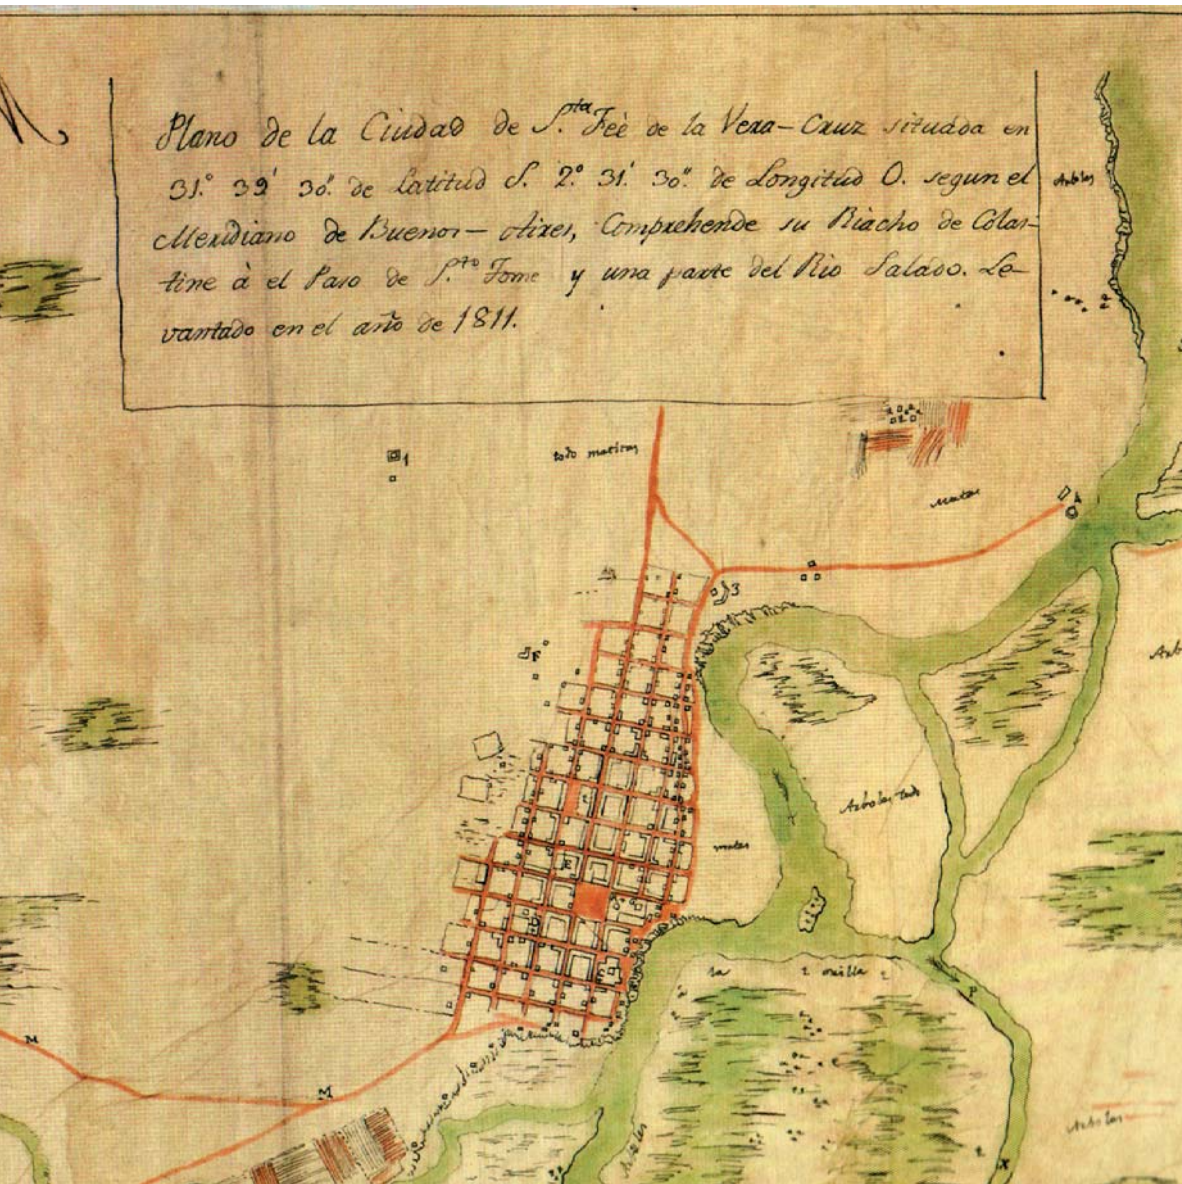 Plano de la Ciudad de S.ta Feè de la Vera-Cruz situada en
31.° 39' 30". de Latitud S. 2.° 31'. 30". de Longitud O. segun el
Meridiano de Buenos-Aires, Comprehende su Riacho de Colas-
tine à el Paso de S.to Tome y una parte del Rio Salado. Le-
vantado en el año de 1811.
Arboles
1
todo maticas
Matas
3
F
Arboles todo
matas
E
la orilla
P
M
M
Arboles
X